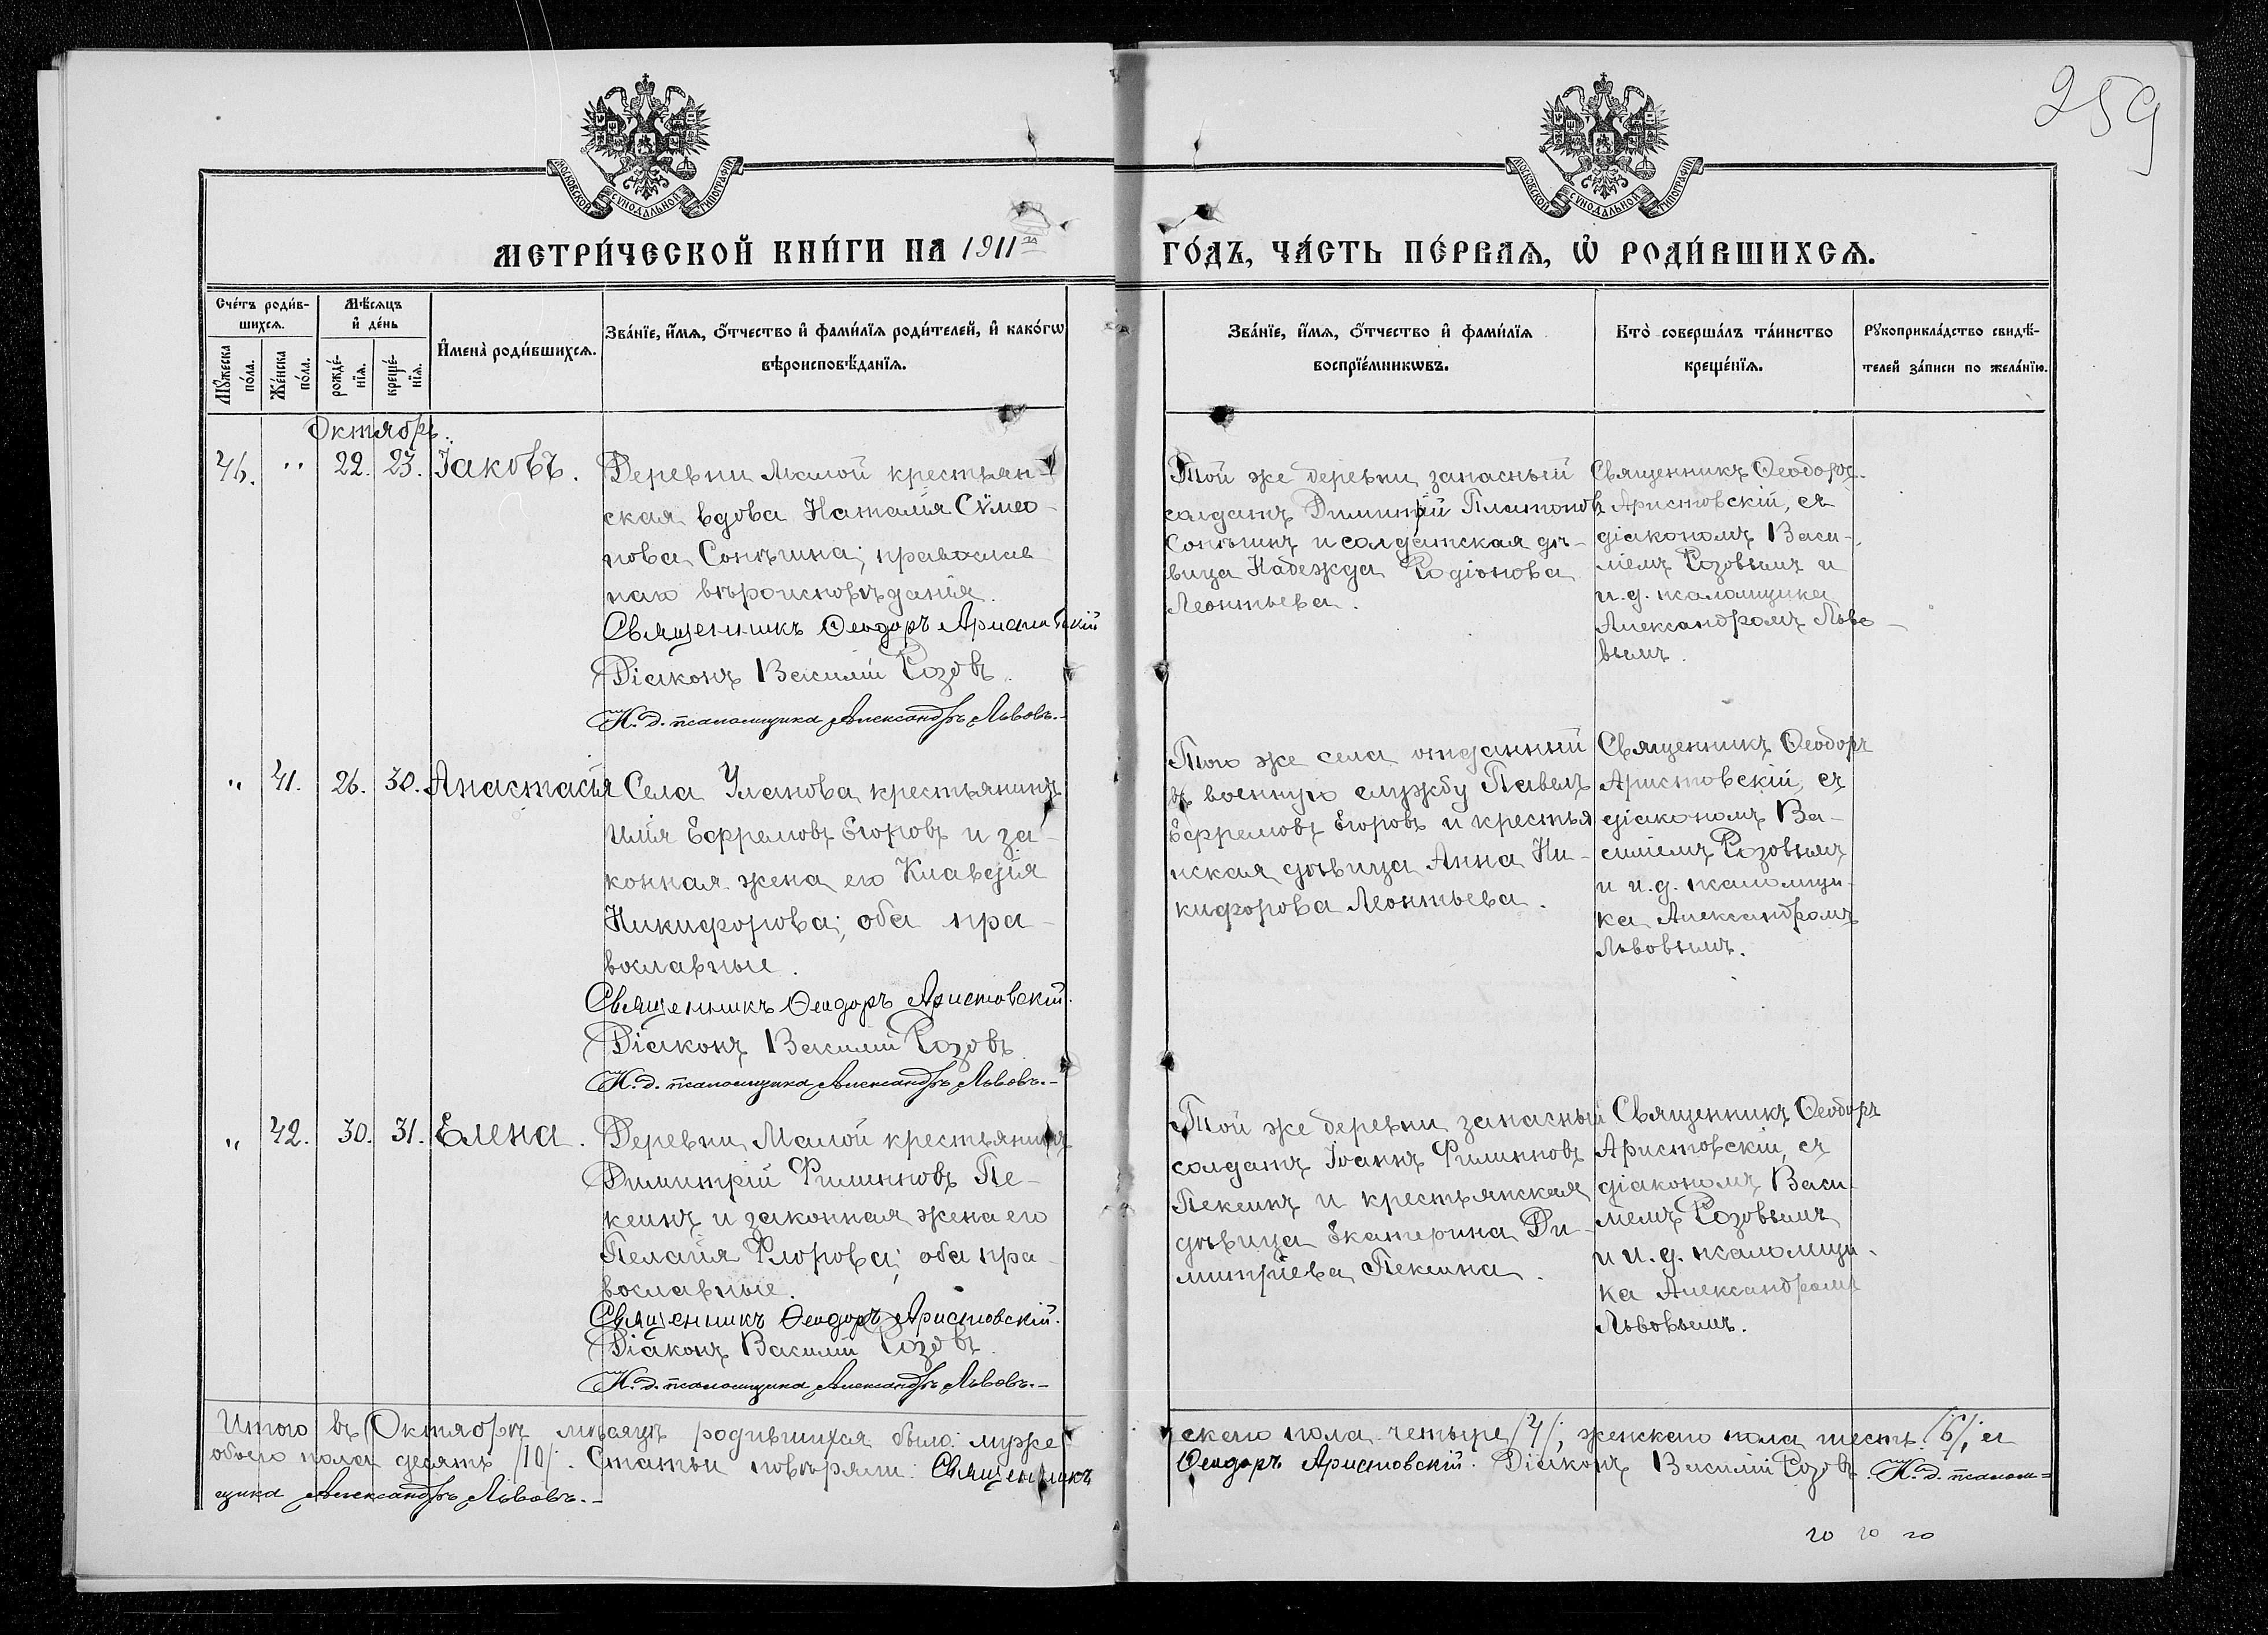 259
МОСКОВСКОЙ СѴНОДАЛЬНОЙ ТИПОГРАФІИ
МОСКОВСКОЙ СѴНОДАЛЬНОЙ ТИПОГРАФІИ
МЕТРИ́ЧЕСКОЙ КНИ́ГИ НА 1911й ГО́ДЪ, ЧА́СТЬ ПЕ́РВАѦ, Ѡ РОДИ́ВШИХСѦ.
Сче́тъ роди́в-
шихсѧ.
Мѣ́сѧцъ
и҆ де́нь
Мꙋ́жеска
по́ла.
Же́нска
по́ла.
рожде́-
нїѧ.
креще́-
нїѧ.
И҆мена̀ роди́вшихсѧ.
Зва́нїе, и҆́мѧ, ѻ҆́тчество и҆ фами́лїѧ роди́телей, и҆ како́гѡ
вѣроисповѣ́данїѧ.
Зва́нїе, и҆́мѧ, ѻ҆́тчество и҆ фами́лїѧ
воспрїе́мникѡвъ.
Кто̀ соверша́лъ та́инство
креще́нїѧ.
Рꙋкоприкла́дство свидѣ́-
телей за́писи по жела́нїю.
Октябрь.
46. " 22. 23. Іаковъ.
Деревни Малой крестьян-
ская вдова Наталія Сѵмео-
нова Сонѣшна; православ-
наго вѣроисповѣданія.
Священникъ Ѳеодоръ Аристовскій
Діаконъ Василій Розовъ.
И. д. псаломщика Александръ Львовъ.-
Той же деревни запасный
солдатъ Димитрій Платоновъ
Сонѣшнъ и солдатская дѣ-
вица Надежда Родіонова
Леонтьева.
Священникъ Ѳеодоръ
Аристовскій, съ
діакономъ Васи-
ліемъ Розовымъ и
и.д. псаломщика
Александромъ Льво-
вымъ.
" 41. 26. 30. Анастасія
Села Уланова крестьянинъ
Илія Ефремовъ Егоровъ и за-
конная жена его Клавдія
Никифорова; оба пра-
вославные.
Священникъ Ѳеодоръ Аристовскій.
Діаконъ Василій Розовъ
И. д. псаломщика Александръ Львовъ.-
Того же села отданный
въ военную службу Павелъ
Ефремовъ Егоровъ и крестья
нская дѣвица Анна Ни-
кифорова Леонтьева.
Священникъ Ѳеодоръ
Аристовскій, съ
діакономъ Ва-
силіемъ Розовымъ
и и.д. псаломщи-
ка Александромъ
Львовымъ.
" 42. 30. 31. Елена.
Деревни Малой крестьянинъ
Димитрій Филипповъ Пе-
кешнъ и законная жена его
Пелагія Флорова; оба пра-
вославные.
Священникъ Ѳеодоръ Аристовскій.
Діаконъ Василій Розовъ.
И. д. псаломщика Александръ Львовъ.-
Той же деревни запасный
солдатъ Іоаннъ Филипповъ
и крестьянская
дѣвица Екатерина Ди-
митріева
Священникъ Ѳеодоръ
Аристовскій, съ
діакономъ Васи-
ліемъ Розовымъ
и и.д. псаломщи-
ка Александромъ
Львовымъ.
Итого въ Октябрѣ мѣсяцѣ родившихся было: муже скаго пола четыре /4/, женскаго пола шесть /6/, а
обоего пола десять /10/. Статьи повѣряли: Священникъ Ѳеодоръ Аристовскій. Діаконъ Василій Розовъ. И. д. псалом=
щика Александръ Львовъ.-